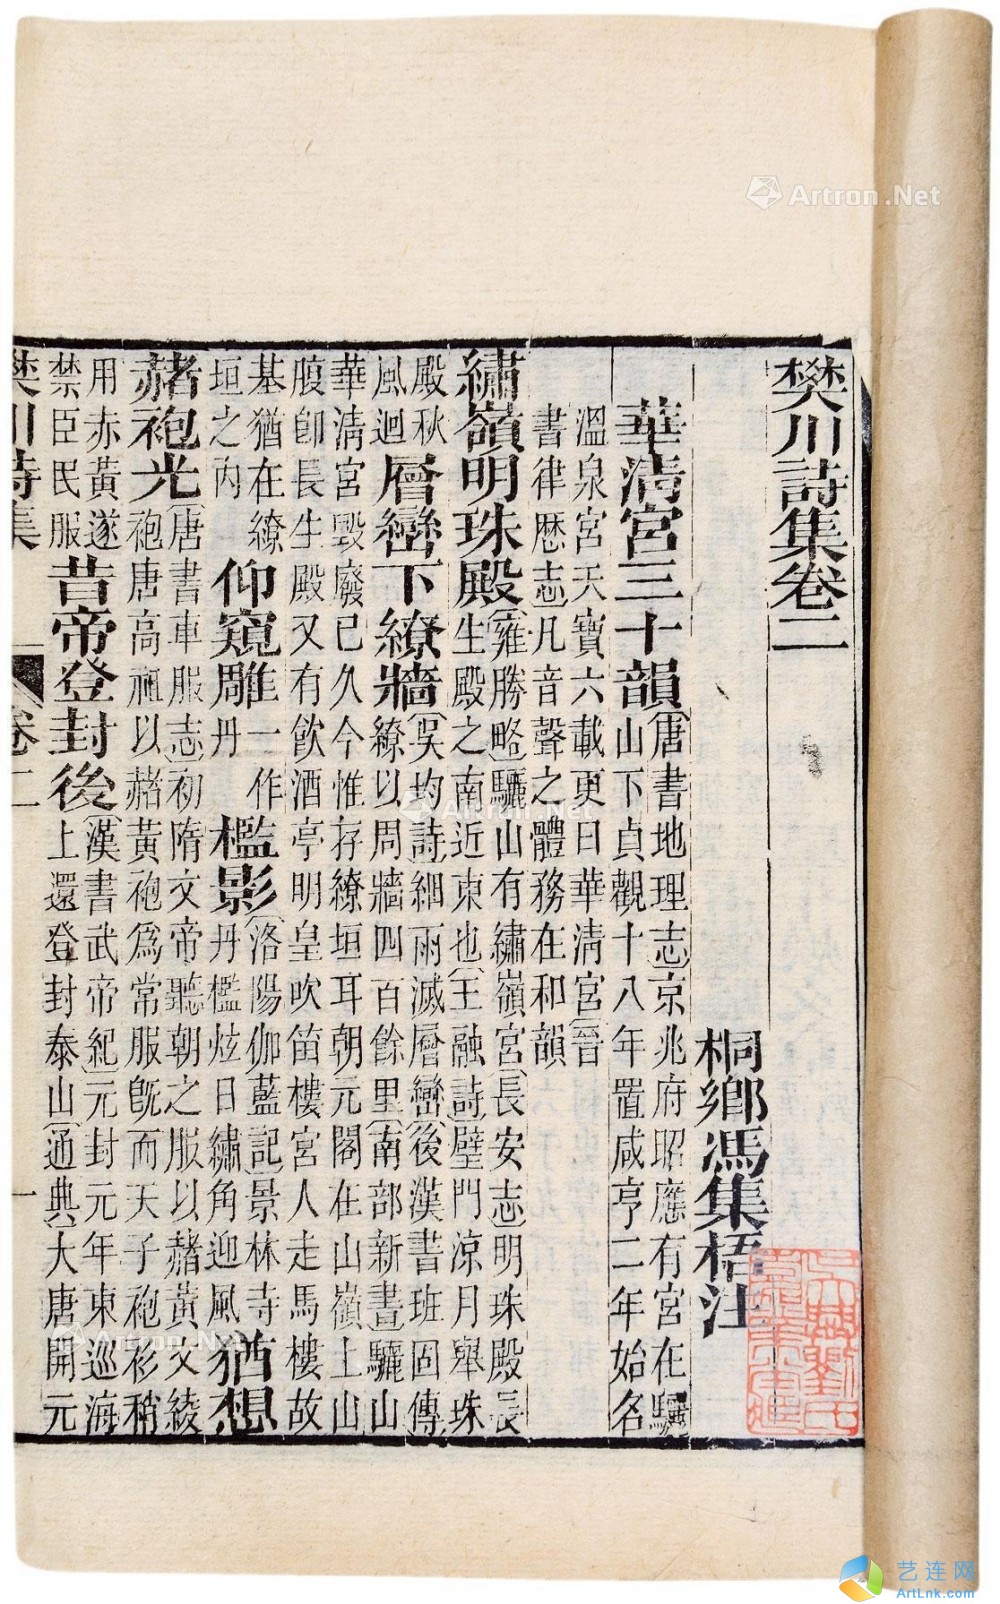 樊川詩集卷二
桐鄉馮集梧注
華清宮三十韻唐書地理志京兆府昭應有宮在驪
山下貞觀十八年置咸亨二年始名
溫泉宮天寶六載更曰華清宮晉
書律歷志凡音聲之體務在和韻
繡嶺明珠殿雍勝略驪山有繡嶺宮長安志明珠殿長
生殿之南近東也王融詩璧門涼月舉珠
殿秋
風迴層巒下繚牆吳均詩細雨滅層巒後漢書班固傳
繚以周牆四百餘里南部新書驪山
華清宮毀廢已久今惟存繚垣耳朝元閣在山嶺上山
腹卽長生殿又有飲酒亭明皇吹笛樓宮人走馬樓故
基猶在繚
垣之內仰窺雕一作
丹檻影洛陽伽藍記景林寺
丹檻炫日繡角迎風猶想
赭袍光唐書車服志初隋文帝聽朝之服以赭黃文綾
袍唐高祖以赭黃袍爲常服旣而天子袍衫稍
用赤黃遂
禁臣民服昔帝登封後漢書武帝紀元封元年東巡海
上還登封泰山通典大唐開元
樊川詩集
卷二
一
Artron.Net
Artron.Net
艺连网
ArtLnk.com